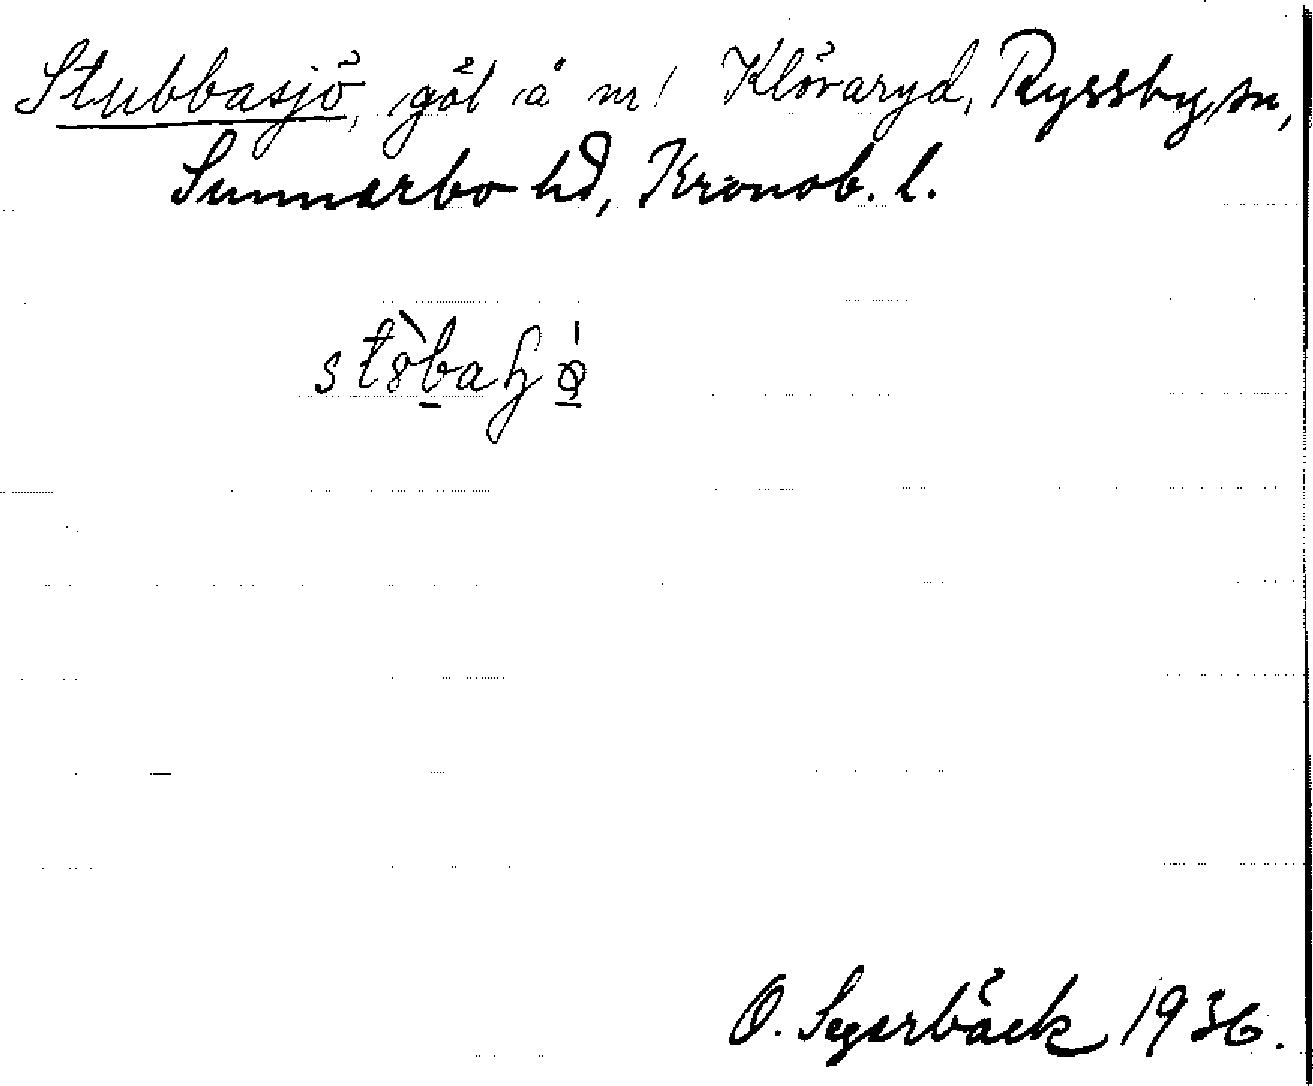 Stubbasjö, göl å nr 1 Klövaryd, Ryssby sn,
Sunnerbo hd, Kronob. l.
O. Segerbäck 1936.